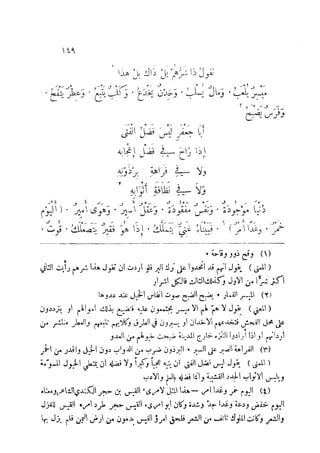 ١٤٩
نقول ذا شرهم بل ذاك بل هذا ١
ميسر يلعب . ومال يسلب . وخدن يخدع . وكلب يتبع . وعطر ينفح .
وفرس يضبح ٢
أيا جعفر ليس فضل الفتى
إذا راح في فرط إعجابه
ولا في فراهة برذونه
ولا في نظافة أثوابه ٣
دنيا موجودة . ونفس مفقودة . وعقل أسير . وهوى أمير . (اليوم
خمر . وغدا أمر) ٤ . فبيناه غني يتملك . إذا هو فقير يتصعلك . قوت .
(١) وقح ذوو وقاحة .
(المعنى) يقول انهم قد اتحدوا على ترك البر فلو أردت ان تقول هذا شرهم رأيت الثاني
أكثر شراً من الاول وكذلك الثالث فالكل اشرار
(٢) الميسر القمار . يضبح الضبح صوت انفاس الخيل عند عدوها
(المعنى) يقول لا هم لهم الا ميسر يجتمعون عليه فتضيع بذلك اموالهم او يترددون
على محل الفحش فتخدعهم الأخدان او يسيرون في الطرق وكلابهم تتبعهم والعطر منتشر من
أردانهم او اذا أرادوا التنزه خارج المدينة ضبحت خيولهم من العدو
(٣) الفراهة الصبر على السير . البرذون ضرب من الدواب دون الخيل واقدر من الحمر
(المعنى) يقول ليس افضل الفتى ان يتيه عجباً وكبراً ولا فضله ان يمتطي الخيول المسومة
ويلبس الأثواب الجدد القشيبة وانما فضله بالعلم والادب
(٤) اليوم خمر وغدا امر — هذا المثل لامرىء القيس بن حجر الكندي الشاعر ومعناه
اليوم خفض ودعة وغدا جد وشدة وكان ابو امرىء القيس حجر طرد امرء القيس للغزل
وكانت الملوك تأنف من الشعر فلحق امرؤ القيس بدمون من أرض اليمن فلم يزل بها